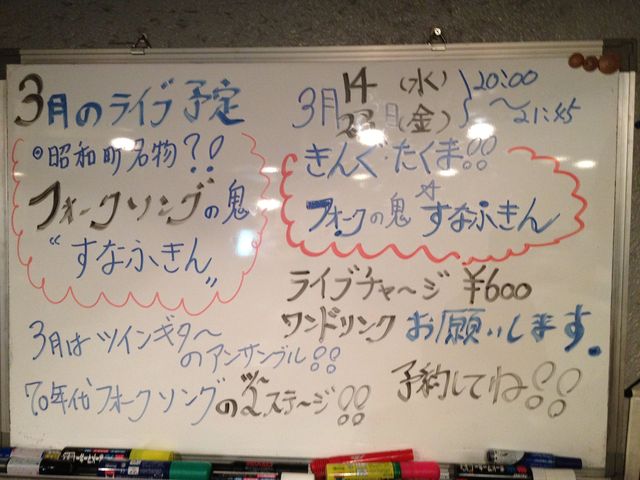 3月のライブ予定
◎昭和町名物??
フォークソングの鬼
“すなふきん”
3月はツインギター
のアンサンブル!!
70年代フォークソングの2ステージ!!
ツー
3月
14(水)
23日(金)
20:00
〜21:45
きんぐ・たくま!!
フォークの鬼 すなふきん
ライブチャージ ¥600
ワンドリンク お願いします。
予約してね!!